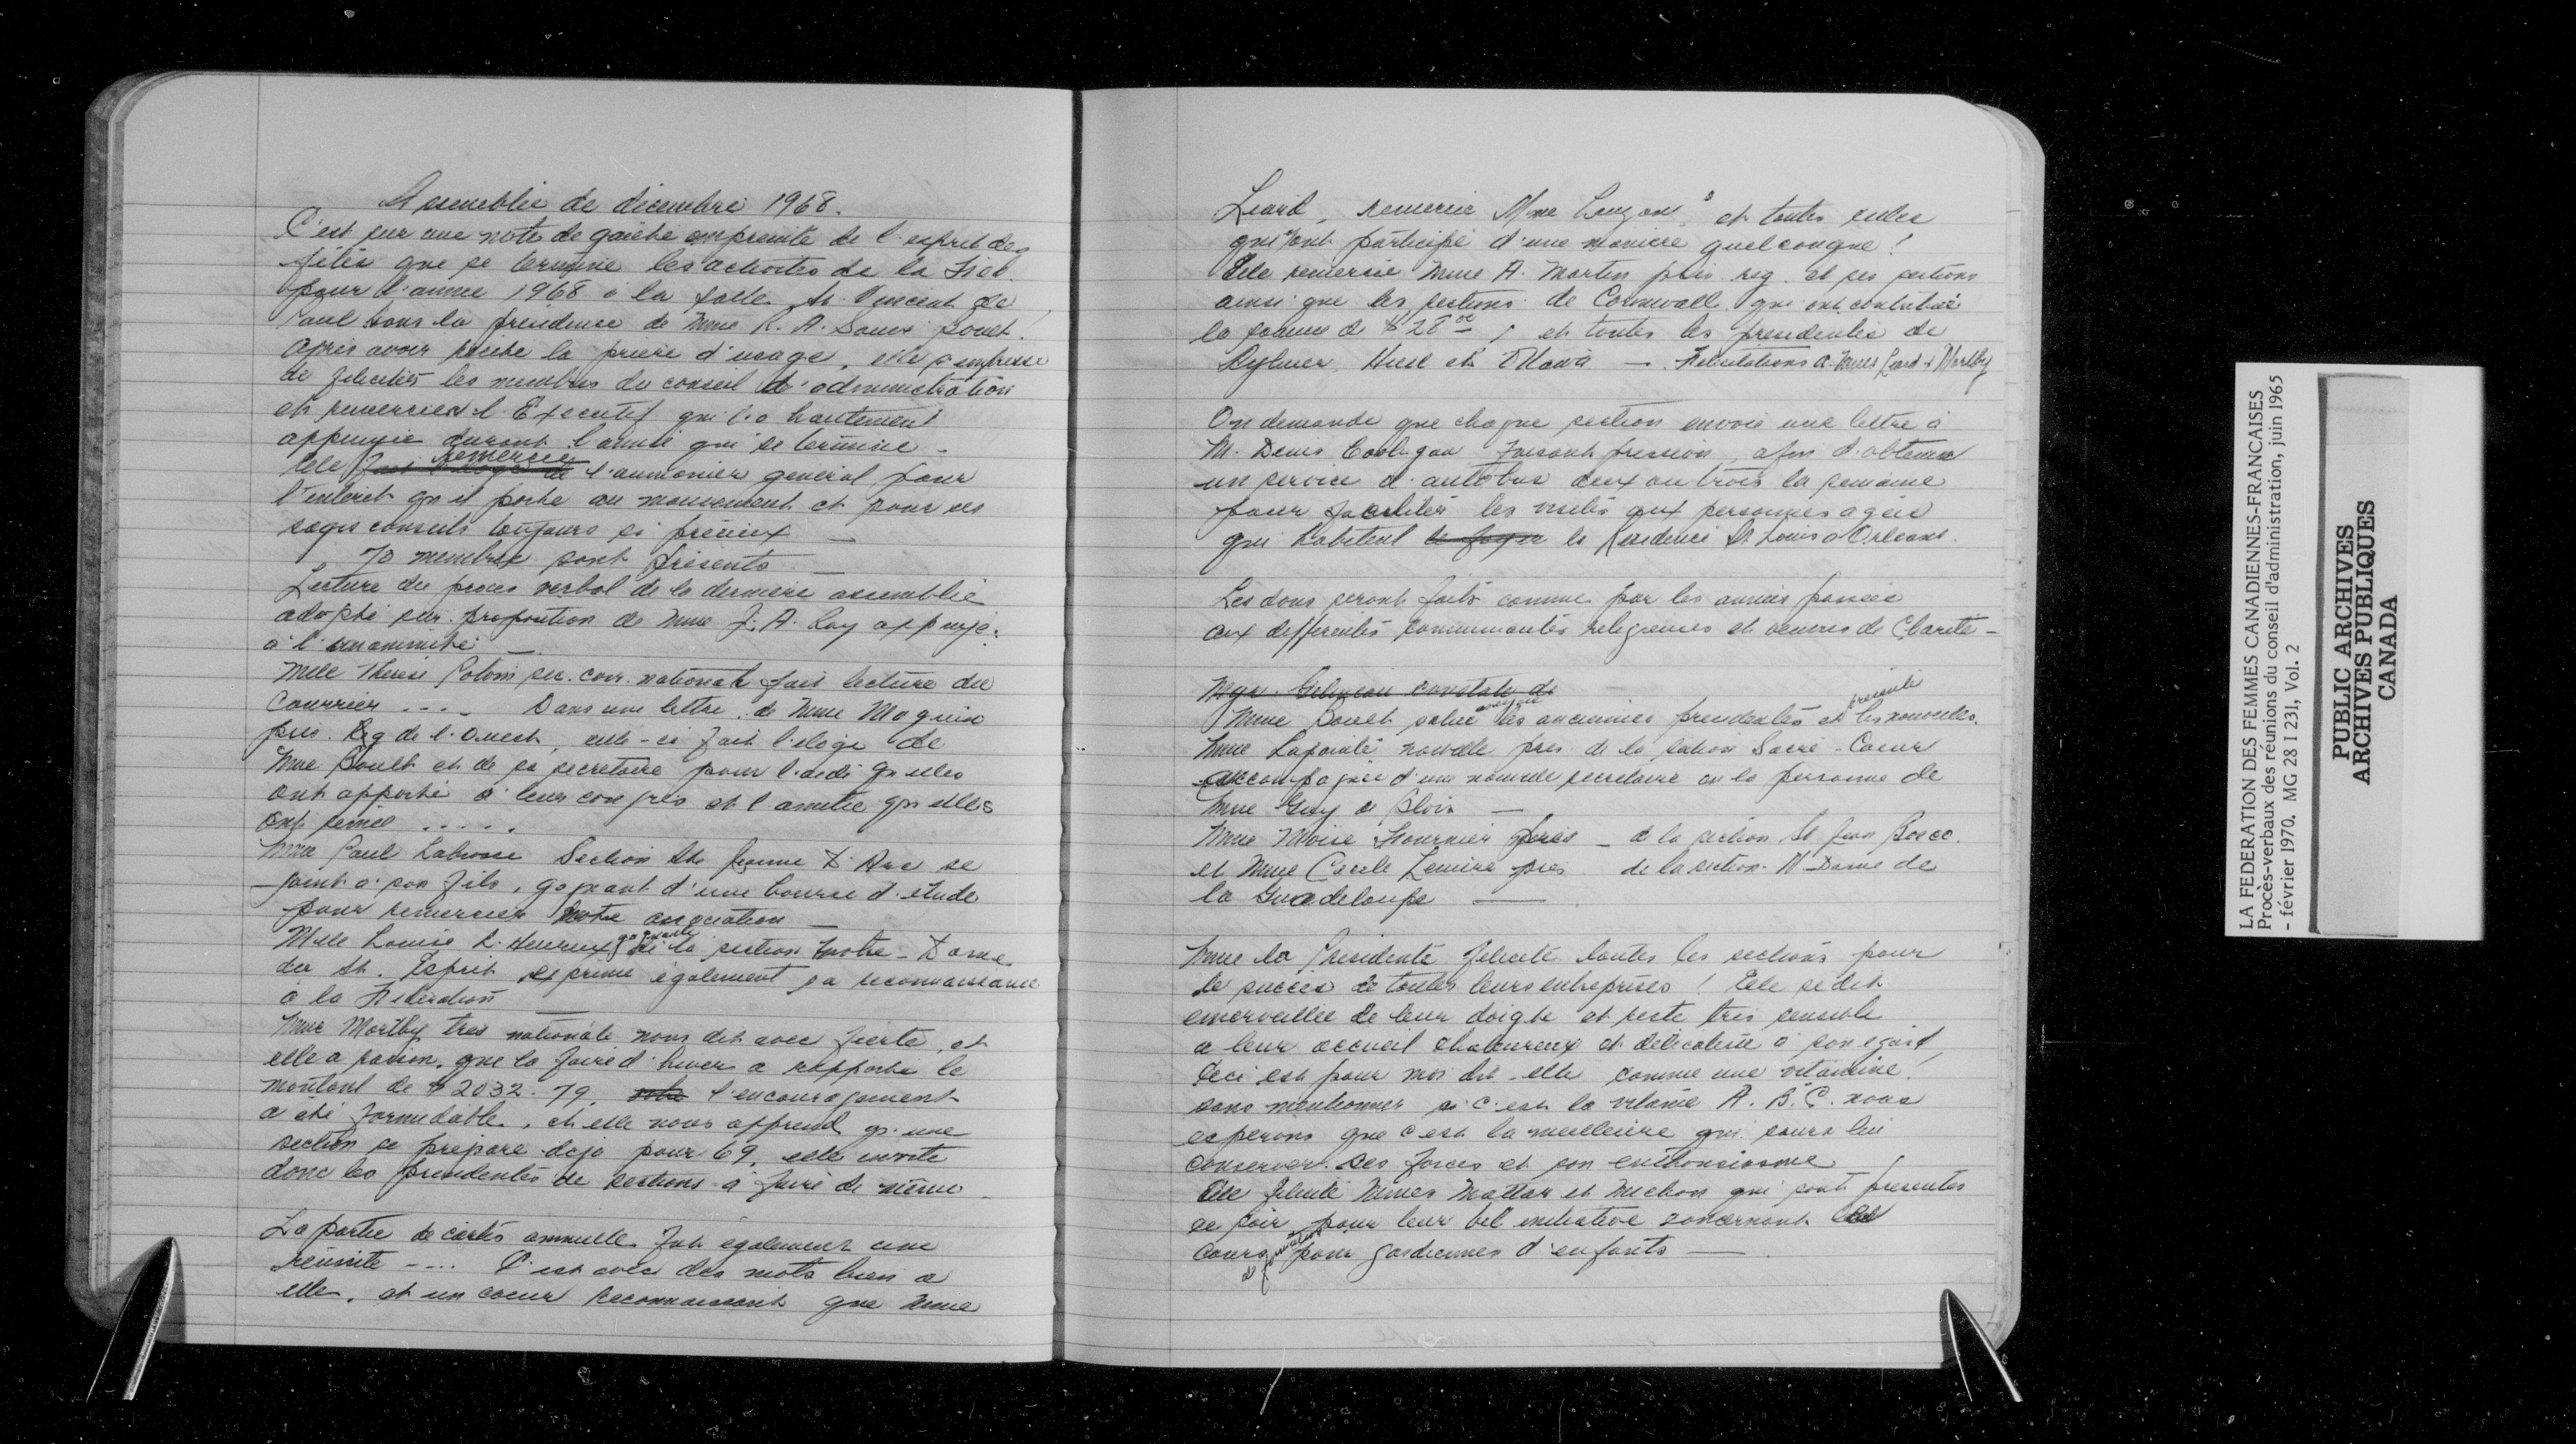 Assemblée de décembre 1968.
C'est sur une note de gaieté empreinte de l'esprit des
fêtes que se termine les activités de la
pour l'année 1968 à la salle St. Vincent de
Paul sous la présidence de Mme R. A. Sauvé Soult.
Après avoir récité la prière d'usage, elle s'empresse
de féliciter les membres du conseil d'administration
et remercier l'Exécutif qui l'a hautement
appuyée durant l'année qui se termine -
Elle remercie l'aumonier général pour
l'intérêt qu'il porte au mouvement et pour ses
sages conseils toujours si précieux —
70 membres sont présents —
Lecture du procès verbal de la dernière assemblée
adopté sur proposition de Mme J. A. Roy appuyé
à l'unanimité —
Mlle Thérèse sec. corr. nationale fait lecture du
Courrier .... Dans une lettre de Mme Maguin
prés. Rég de l'Ouest, celle-ci fait l'éloge de
Mme Soult et de sa secrétaire pour l'aide qu'elles
ont apporté à leur congrès et l'amitié qu'elles
ont semé .....
Mme Paul Labrosse Section Ste Jeanne D'Arc se
joint à son fils, gagnant d'une bourse d'étude
pour remercier notre association —
Mlle Louise L'Heureux gagnante de la section Notre-Dame
du St. Esprit exprime également sa reconnaissance
à la Fédération —
Mme Mortby tres nationale nous dit avec fierté, et
elle a raison, que la foire d'hiver a rapporté le
montant de $2032.79, l'encouragement
a été formidable, et elle nous apprend qu'une
section se prépare déjà pour 69, elle invite
donc les présidentes de sections à faire de même -
La partie de cartes annuelle fut également une
réussite -... C'est avec des mots bien à
elle, et un coeur reconnaissant que Mme
Liard, remercie Mme Lauzon et toutes celles
qui ont participé d'une manière quelconque !
Elle remercie Mme A. Martin prés. rég. et ses sections
ainsi que les sections de Cornwall qui ont contribué
la somme de $28 00, et toutes les présidentes de
Aylmer, Hull et Ottawa — Félicitations à Mmes Liard & Mortby
On demande que chaque section envoie une lettre à
M. Denis Cooligan faisant pression, afin d'obtenir
un service d'autobus deux ou trois la semaine
pour faciliter les visites aux personnes agées
qui habitent la Résidence St Louis d'Orléans.
Les dons seront faits comme par les années passées
aux différentes communautés religieuses et oeuvres de Charité -
Mgr. constate de
Mme Soult salue les anciennes présidentes et présente les nouvelles.
Mme Lapointe nouvelle prés. de la section Sacré-Coeur
accompagnée d'une nouvelle secrétaire en la personne de
Mme Guy de Blois —
Mme Moïse Fournier prés — de la section St Jean Bosco.
et Mme Cécile Lemire prés de la section N-Dame de
la Guadeloupe —
Mme la Présidente félicite toutes les sections pour
le succès de toutes leurs entreprises ! Elle se dit
émerveillée de leur doigté et reste très sensible
à leur accueil chaleureux et délicatesse à son égard,
ceci est pour moi dit-elle comme une vitamine !
sans mentionner si c'est la vitamine A. B. C. nous
espérons que c'est la meilleure qui saura lui
conserver ses forces et son enthousiasme !
Elle félicite Mmes Mattar et Michon qui sont présentes
ce soir, pour leur bel initiative concernant les
Cours de formation pour gardiennes d'enfants — .
LA FEDERATION DES FEMMES CANADIENNES-FRANCAISES
Procès-verbaux des réunions du conseil d'administration, juin 1965
- février 1970. MG 28 I 231, Vol. 2
PUBLIC ARCHIVES
ARCHIVES PUBLIQUES
CANADA